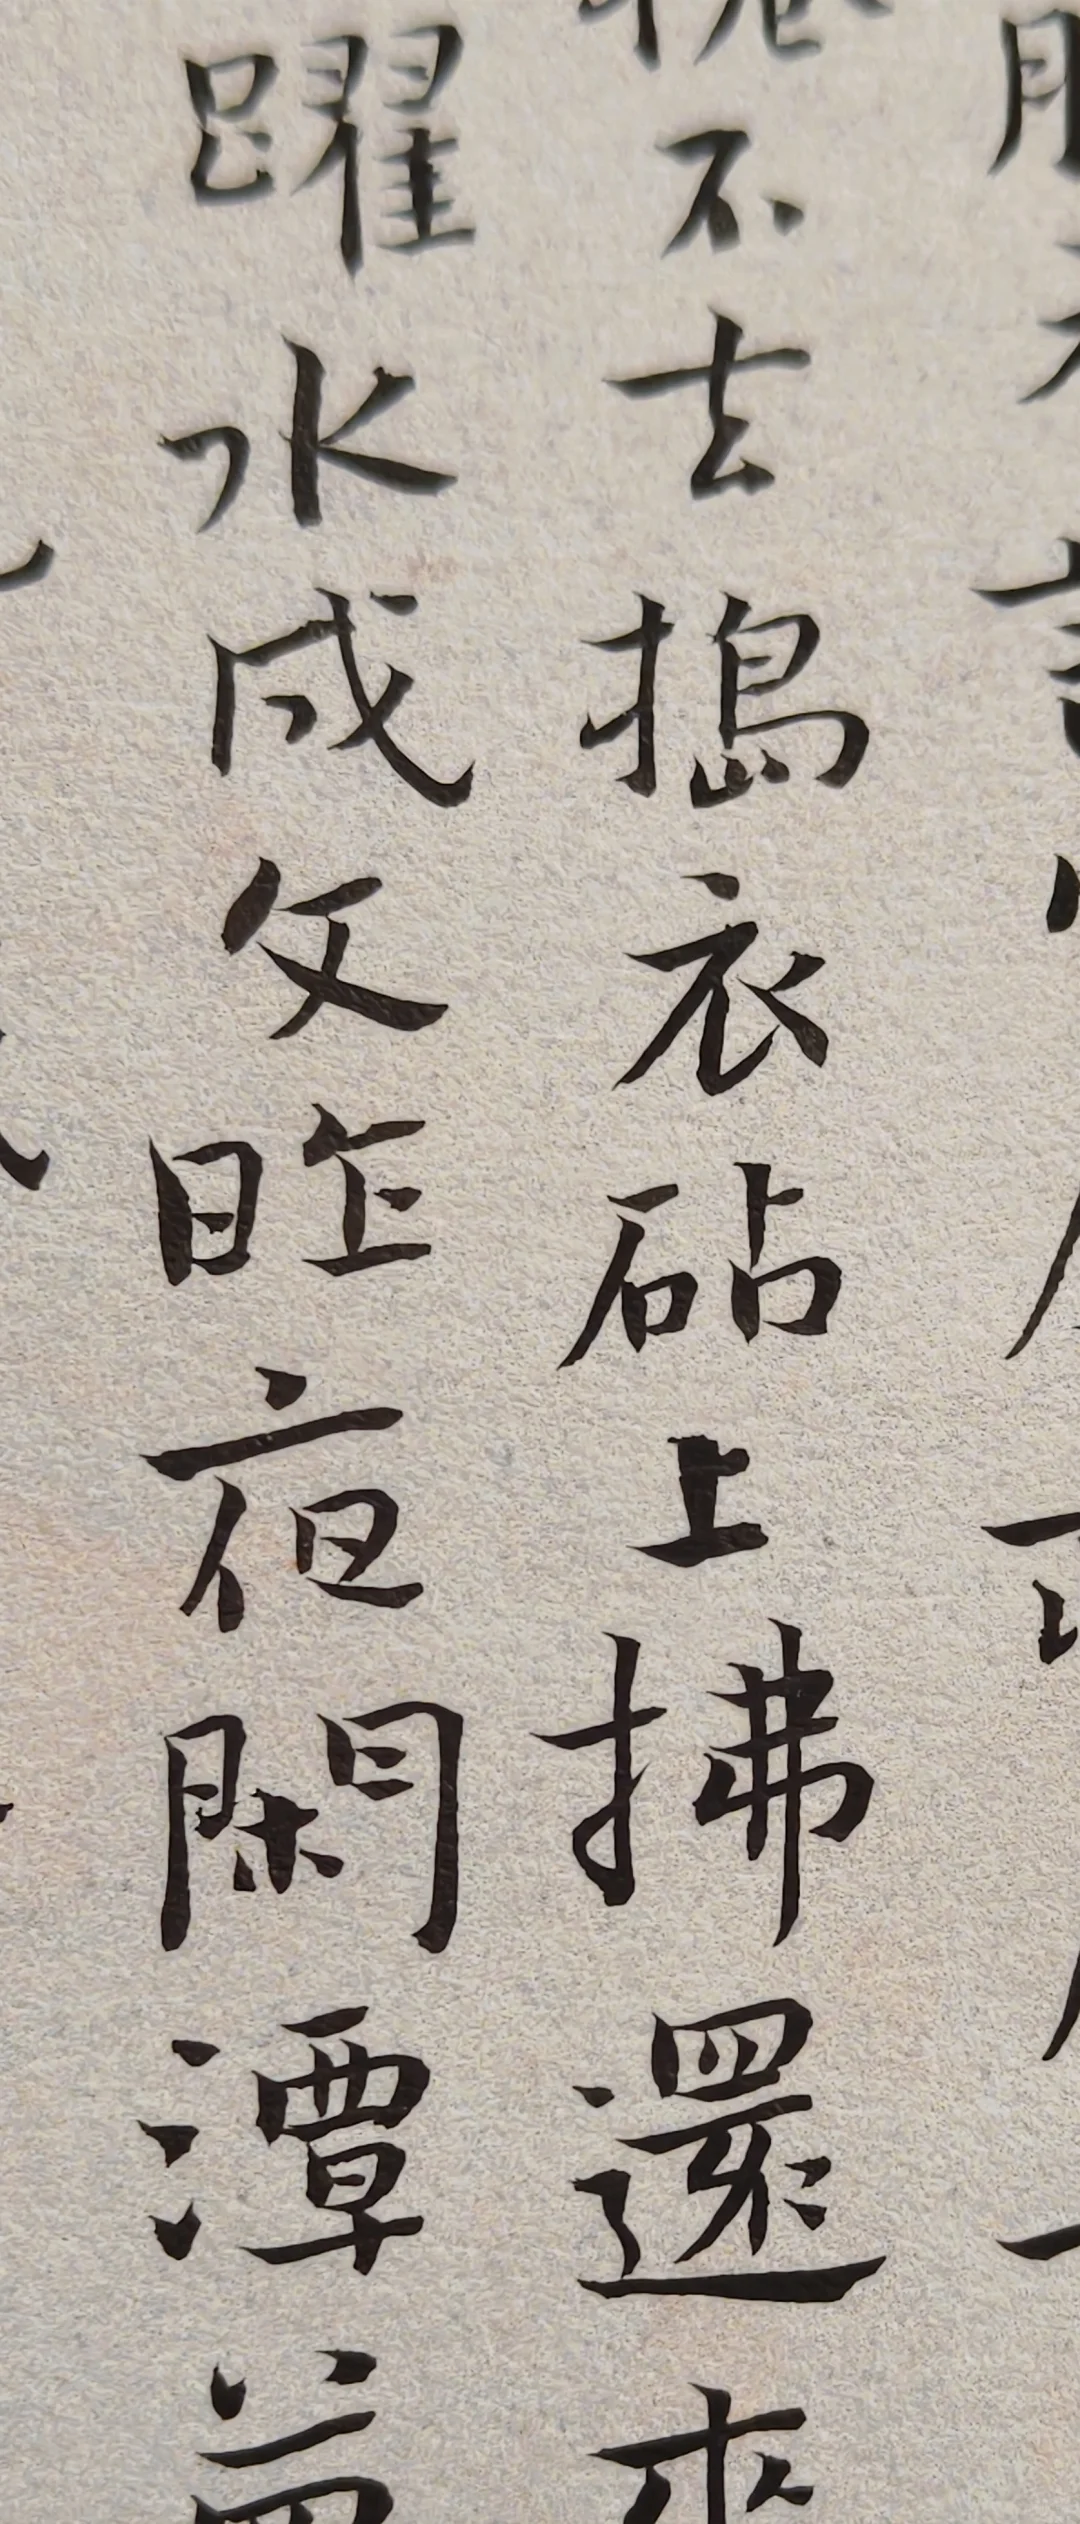 不去搗衣砧上拂還來
躍水成文昨夜閑潭